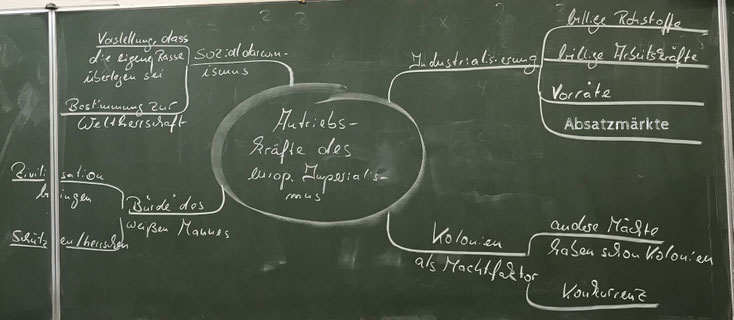 Antriebs-
kräfte des
europ. Imperialis-
mus
Sozialdarwin-
ismus
Vorstellung, dass
die eigene Rasse
überlegen sei
Bestimmung zur
Weltherrschaft
"Bürde" des
weißen Mannes
Zivilisation
bringen
Schützen/herrschen
Industrialisierung
billige Rohstoffe
billige Arbeitskräfte
Vorräte
Absatzmärkte
Kolonien
als Machtfaktor
andere Mächte
haben schon Kolonien
Konkurrenz